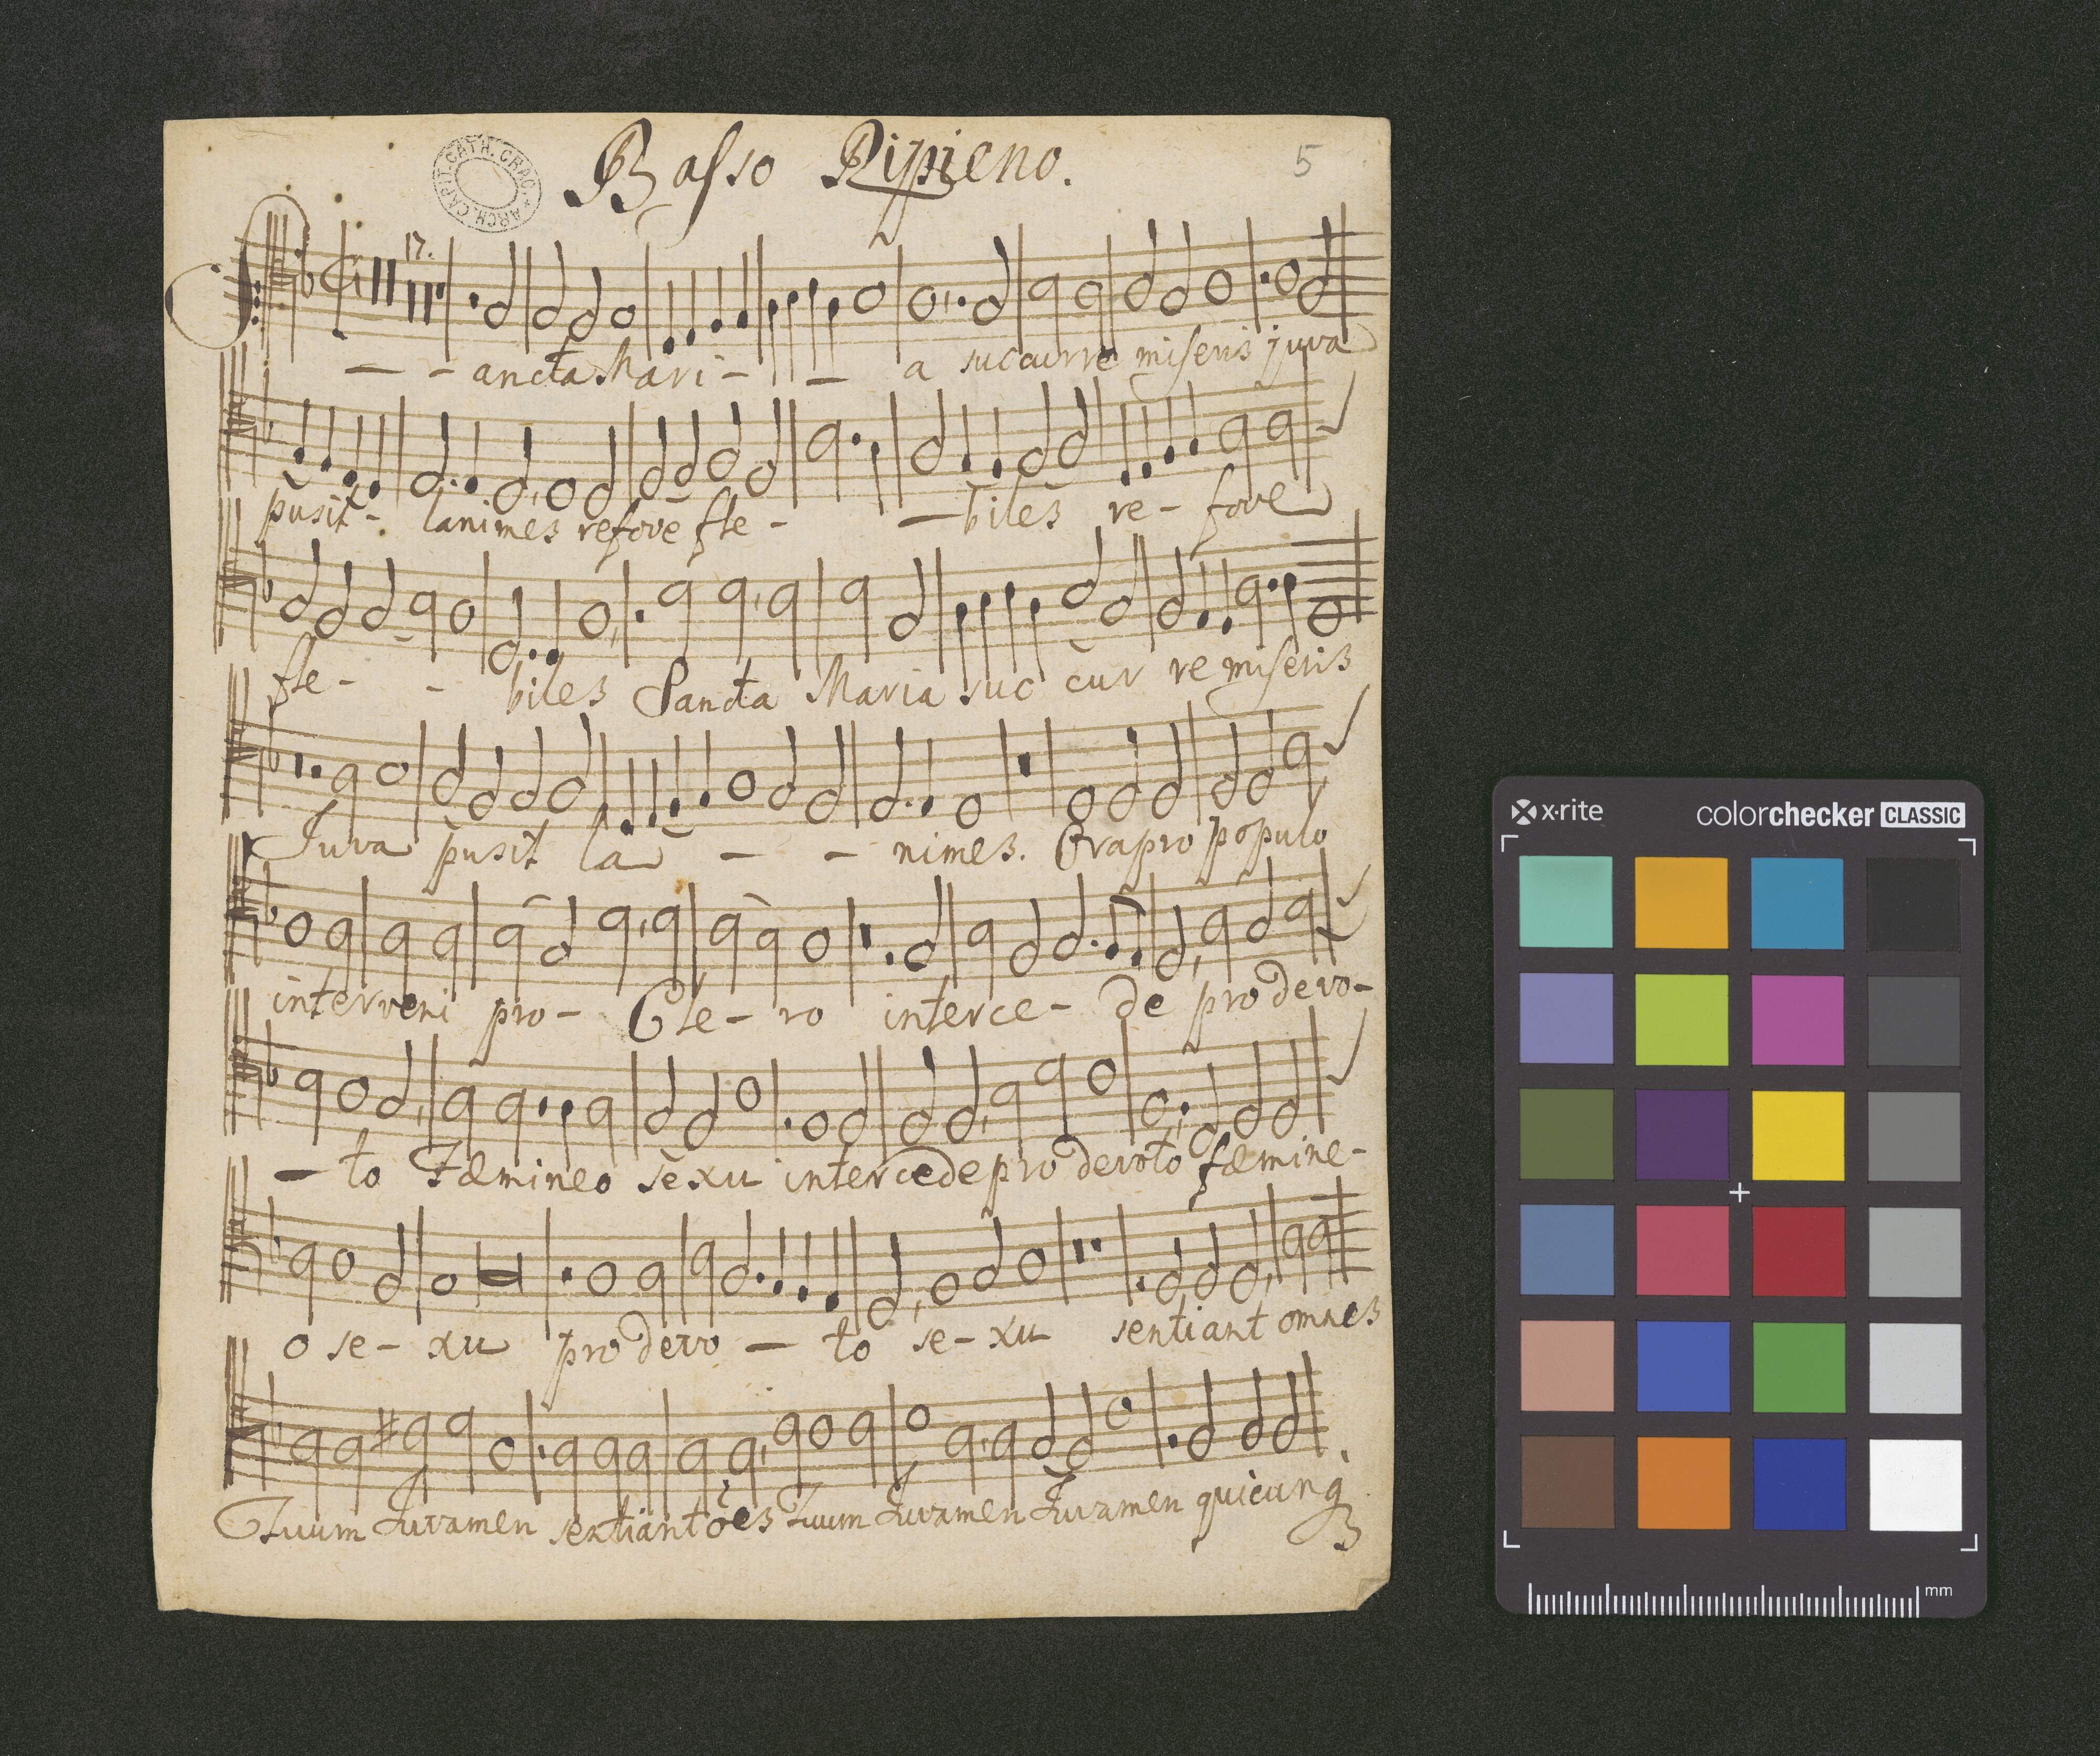 ARCH. CAPIT. CATH. CRAC.
Basso Ripieno.
5
17.
- - ancta Mari - - a succurre miseris juva
pusil- lanimes refove fle - - biles re- fove
fle- - biles Sancta Maria suc cur re miseris
Juva pusil la - - nimes. Ora pro populo
interveni pro- Cle- ro interce- de pro devo-
- to Fæmineo sexu intercede pro devoto fæmine-
o se- xu pro devo - to se- xu sentiant omnes
Tuum Juvamen sentiant oes Tuum Juvamen Juvamen quicunq
x·rite
colorchecker CLASSIC
mm